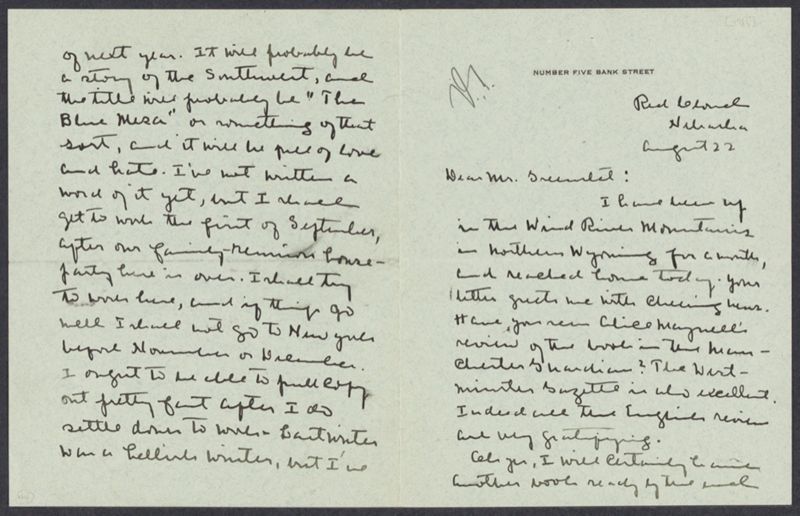 NUMBER FIVE BANK STREET
Red Cloud
Nebraska
August 22
Dear Mr. Greenslet:
I have been up
in the Wind River Mountains
in Northern Wyoming for a month,
and reached home today. Your
letter greets me with cheering news.
Have you seen Alice Meynell's
review of the book in the Man-
chester Guardian? The West-
minster Gazette is also excellent.
Indeed all the English reviews
are very gratifying.
Oh yes, I will certainly have
another book ready by the end
of next year. It will probably be
a story of the Southwest, and
the title will probably be "The
Blue Mesa" or something of that
sort, and it will be full of love
and hate. I've not written a
word of it yet, but I shall
get to work the first of September,
after our family-reunion house-
party here is over. I shall try
to work here, and if things go
well I shall not go to New York
before November or December.
I ought to be able to pull copy
out pretty fast after I do
settle down to work - Last winter
was a hellish winter, but I've